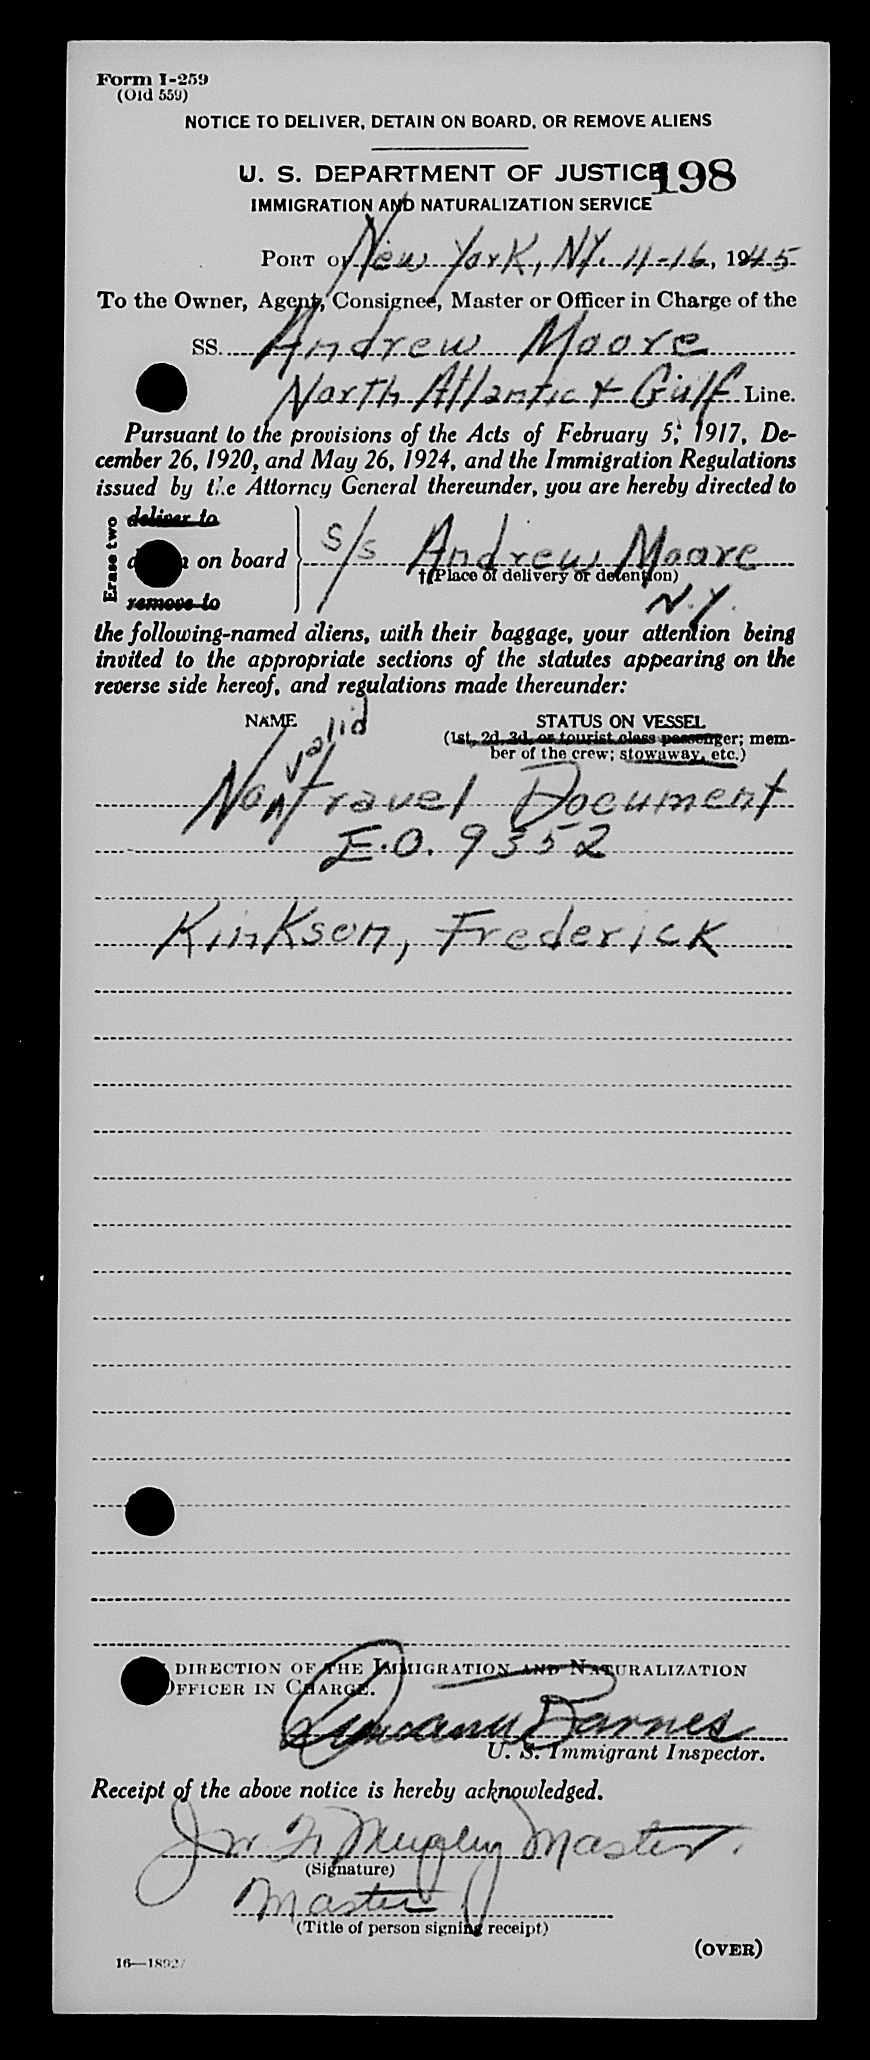 Form I-259
(Old 559)
NOTICE TO DELIVER, DETAIN ON BOARD, OR REMOVE ALIENS
U. S. DEPARTMENT OF JUSTICE 198
IMMIGRATION AND NATURALIZATION SERVICE
PORT OF New York, NY. 11-16, 1945
To the Owner, Agent, Consignee, Master or Officer in Charge of the
SS. Andrew Moore
North Atlantic & Gulf Line.
Pursuant to the provisions of the Acts of February 5, 1917, De-
cember 26, 1920, and May 26, 1924, and the Immigration Regulations
issued by the Attorney General thereunder, you are hereby directed to
deliver to
Erase two on board S/S Andrew Moore
†(Place of delivery or detention)
remove to N.Y.
the following-named aliens, with their baggage, your attention being
invited to the appropriate sections of the statutes appearing on the
reverse side hereof, and regulations made thereunder:
NAME STATUS ON VESSEL
(1st, 2d, 3d, or tourist class passenger; mem-
ber of the crew; stowaway, etc.)
valid
No Travel Document
E.O. 9352
Kinkson, Frederick
DIRECTION OF THE IMMIGRATION AND NATURALIZATION
OFFICER IN CHARGE.
Barnes
U. S. Immigrant Inspector.
Receipt of the above notice is hereby acknowledged.
Master.
(Signature)
Master
(Title of person signing receipt)
(OVER)
16—18927